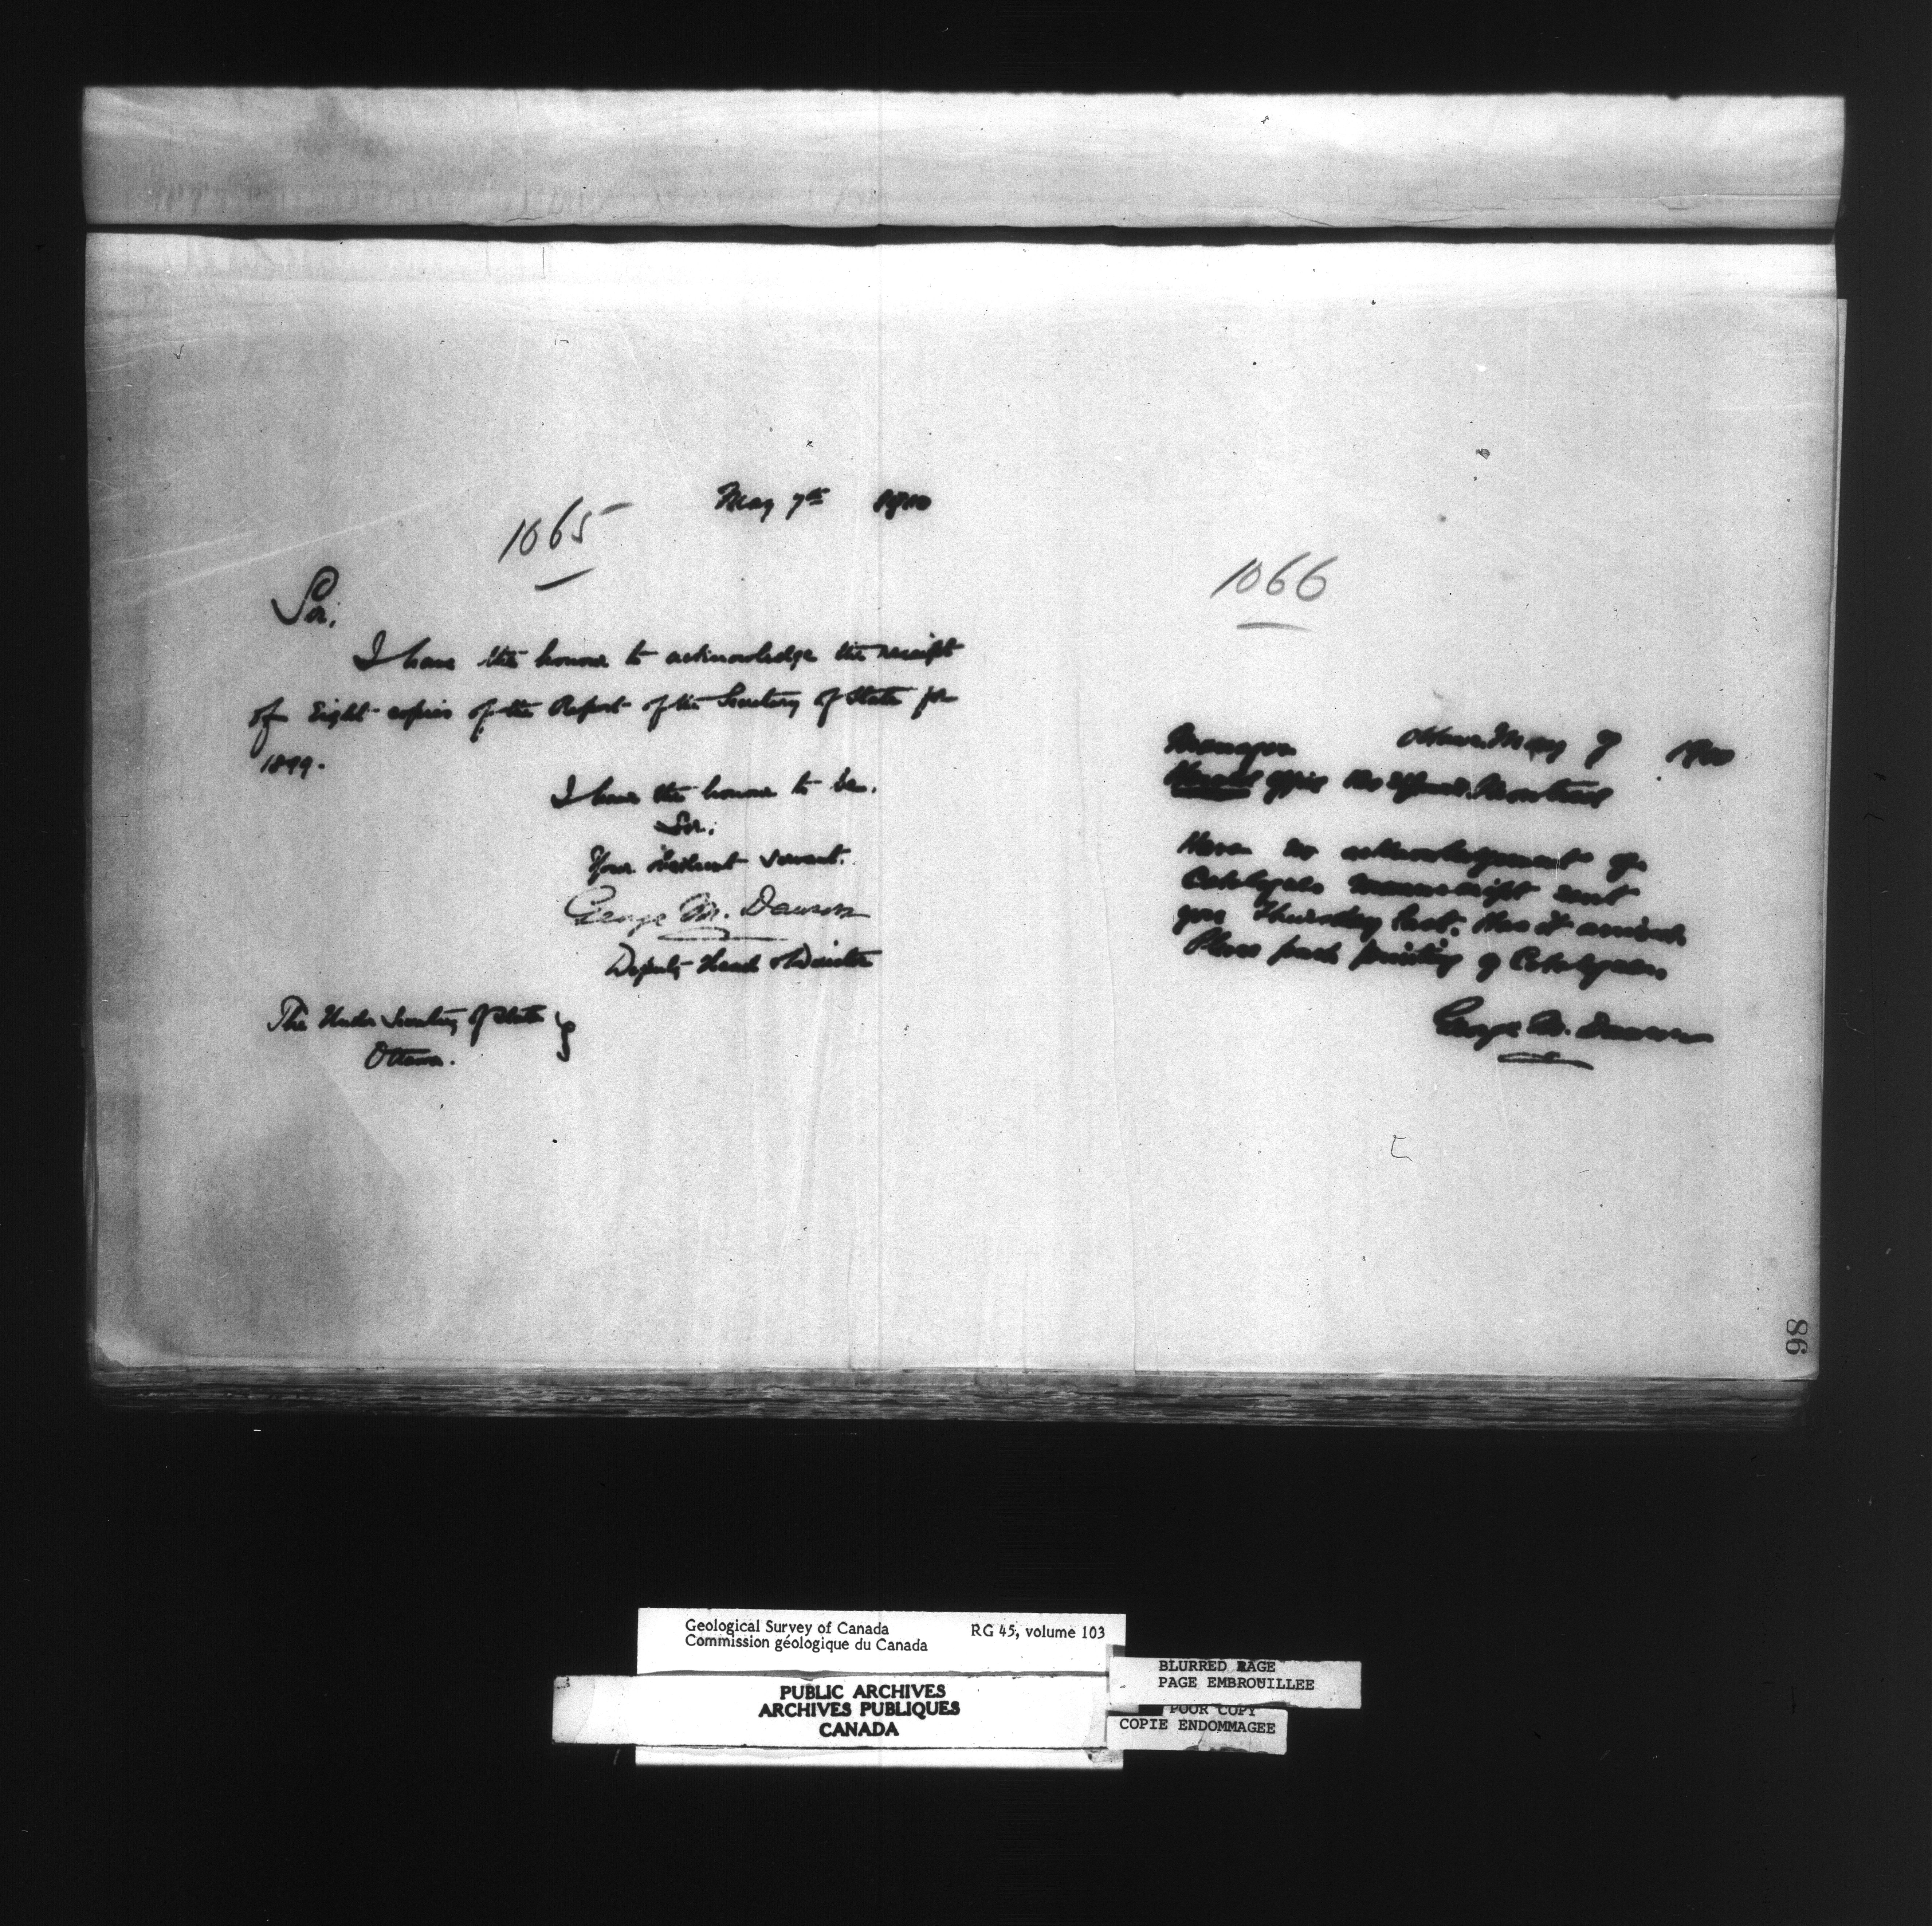 1065
May 7th 1900
Sir,
I have the honour to acknowledge the receipt
of Eight copies of the Report of the Secretary of State for
1899.
I have the honour to be,
Sir,
Your obedient servant.
George M. Dawson
Deputy Head & Director
The Under Secretary of State
Ottawa.
1066
Ottawa May 7 1900
Manager
Herald office Montreal
Have no acknowledgment of
Catalogue manuscript sent
you Thursday last. Has it arrived.
Please push printing of Catalogue.
George M. Dawson
86
Geological Survey of Canada RG 45, volume 103
Commission géologique du Canada
PUBLIC ARCHIVES
ARCHIVES PUBLIQUES
CANADA
BLURRED PAGE
PAGE EMBROUILLEE
POOR COPY
COPIE ENDOMMAGEE